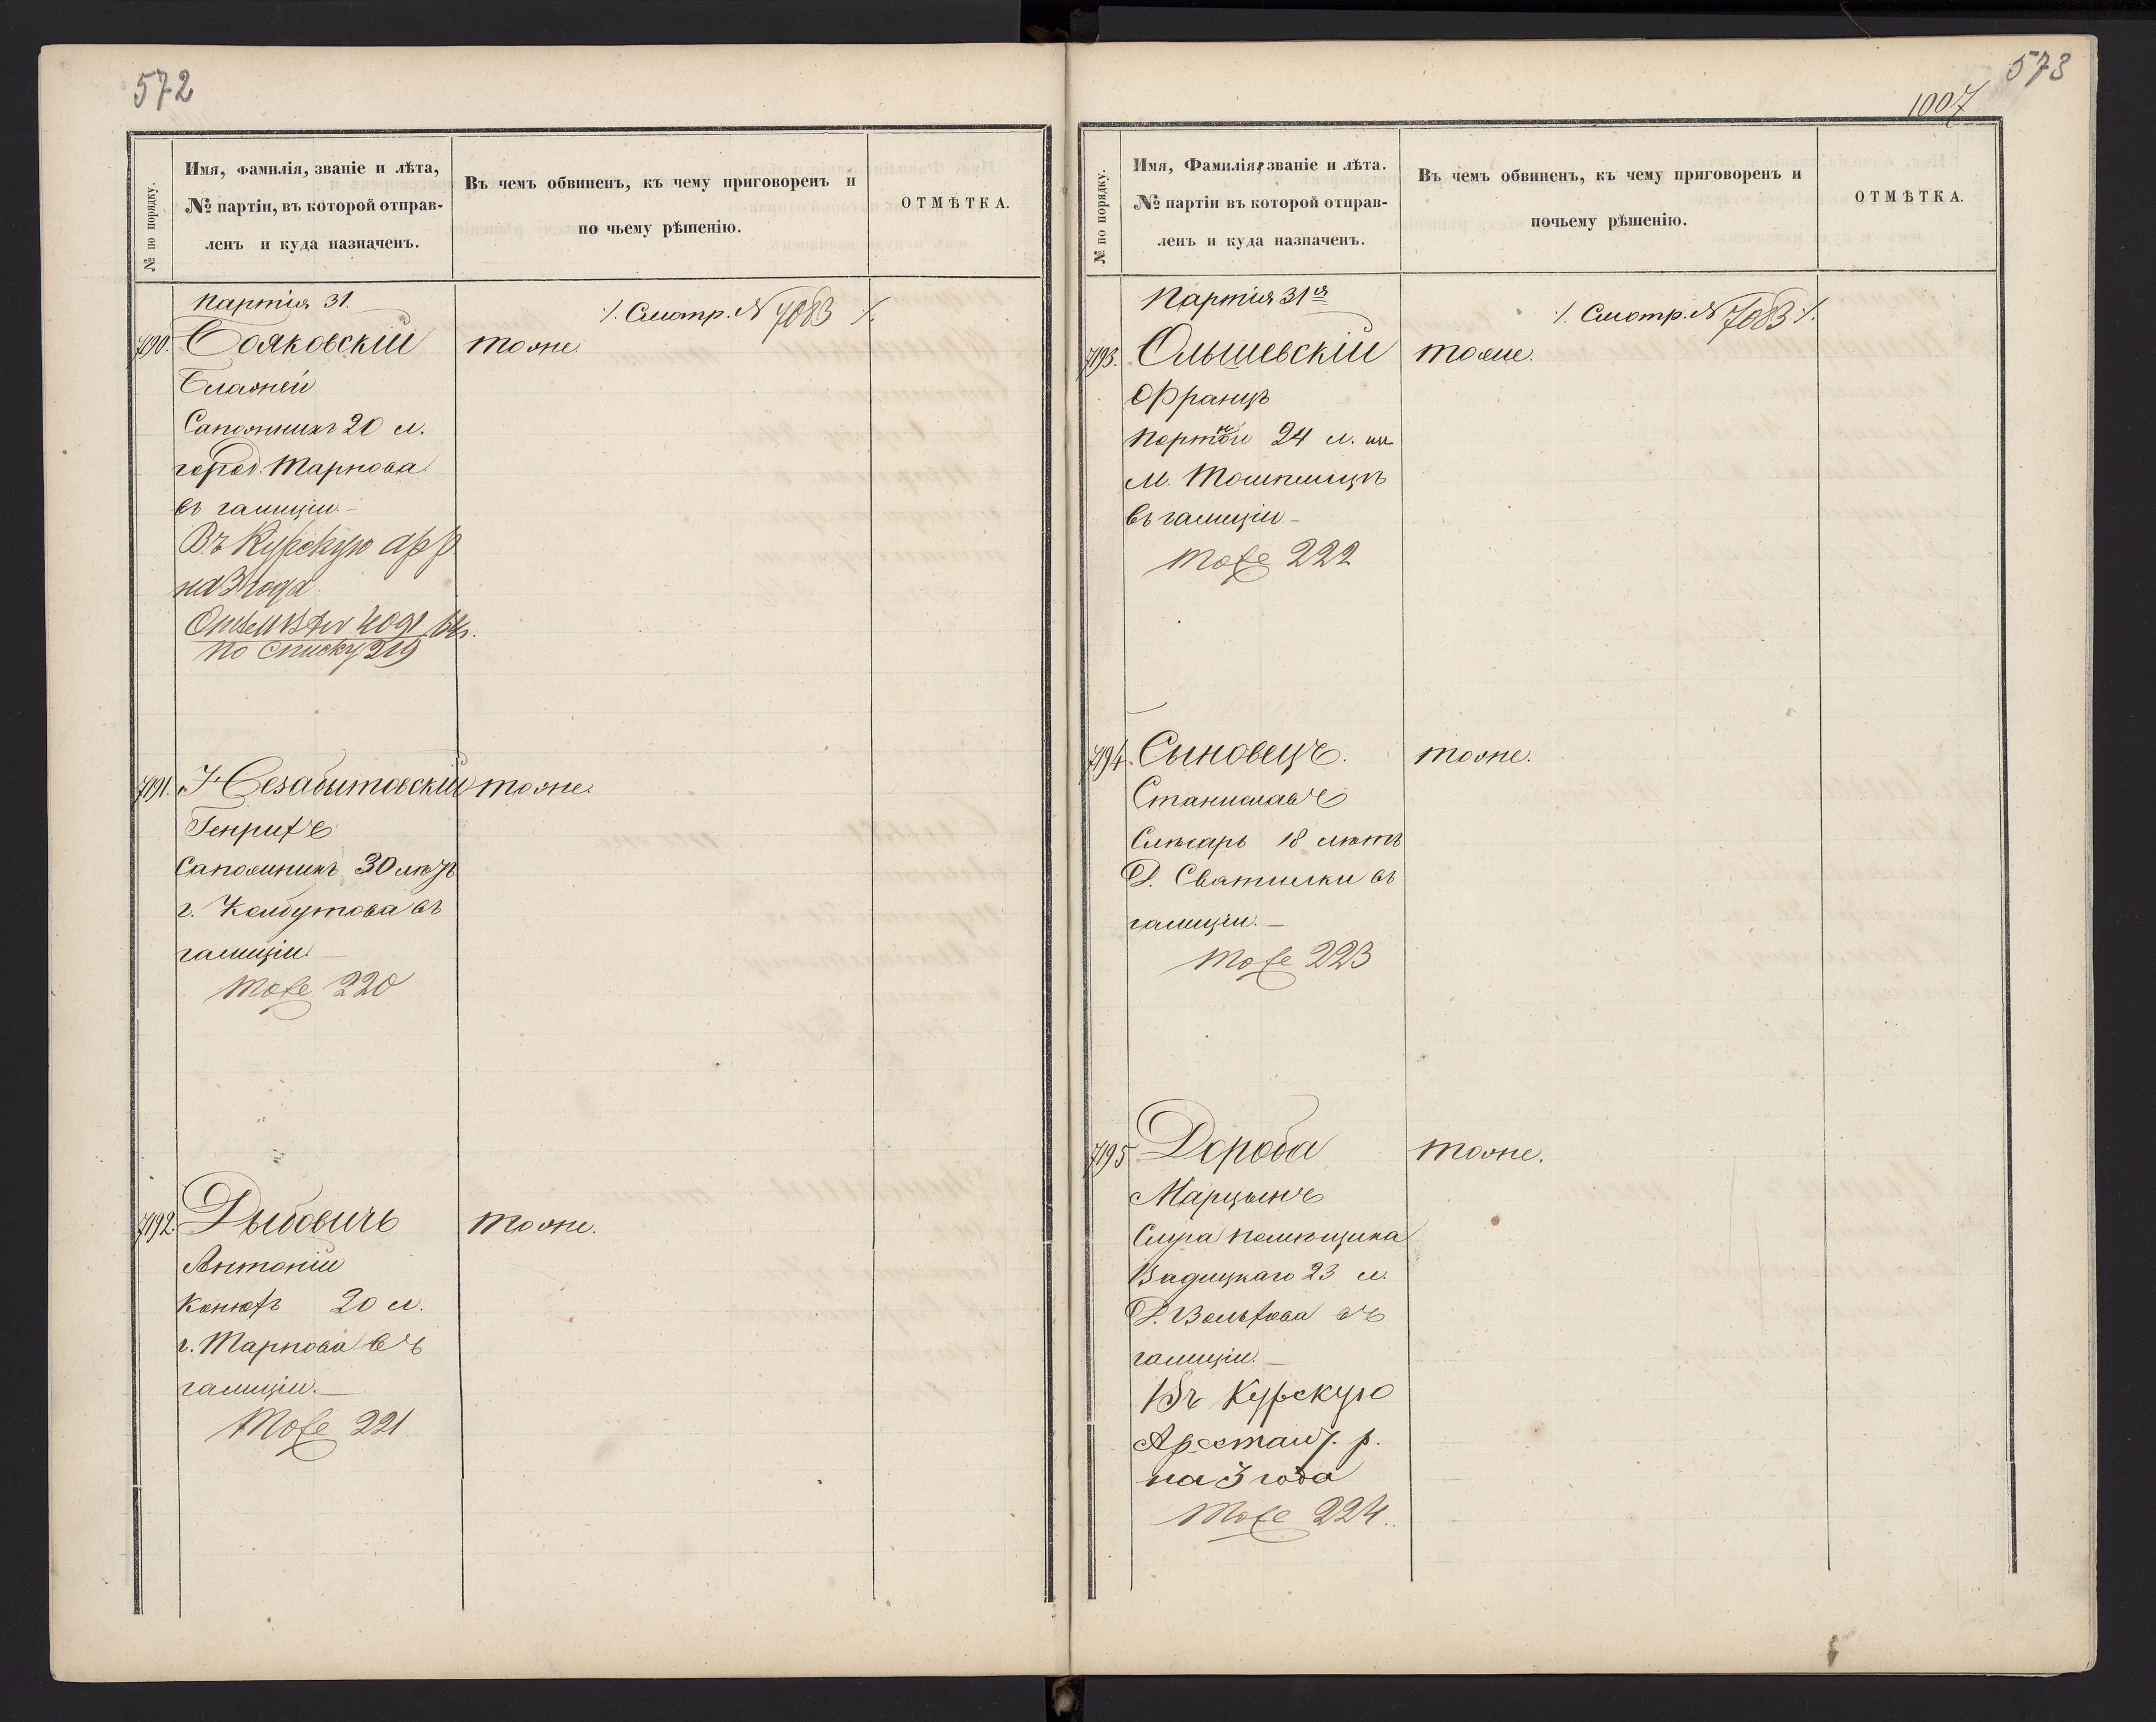 572
№ по порядку.
Имя, фамилія, званіе и лѣта,
№ партіи, въ которой отправ-
ленъ и куда назначенъ.
Въ чемъ обвиненъ, къ чему приговоренъ и
по чьему рѣшенію.
ОТМѢТКА.
Партія 31.
/. Смотр. № 7083 /.
7190. Бояковскій тоже.
Блажей
Сапожникъ 20 л.
город. Тарнова
въ галиціи.-
Въ Курскую ар р
на 3 года.
по списку 219
7191. Незабытовскій тоже.
Генрихъ
Сапожникъ 30 лѣтъ
г. Колбутова въ
галиціи.
Тоже 220
7192. Дыбовичъ тоже.
Антоній
Конюхъ 20 л.
г. Тарнова въ
галиціи.—
Тоже 221.
573
1007
№ по порядку.
Имя, Фамилія, званіе и лѣта.
№ партіи въ которой отправ-
ленъ и куда назначенъ.
Въ чемъ обвиненъ, къ чему приговоренъ и
почьему рѣшенію.
ОТМѢТКА.
Партія 31я
/. Смотр. № 7083 /.
7193. Ольшевскій тоже.
Францъ
Портной 24 л.
М.
въ галиціи -
Тоже 222
7194. Сыновецъ. тоже.
Станиславъ
Слѣсарь 18 лѣтъ
Д. Сватилки въ
галиціи. —
Тоже 223
7195 Дороба тоже.
Марцынъ
Слуга помѣщика
Вадицкаго 23 л.
Д. Вольхова въ
галиціи. —
Въ Курскую
Арестант. р.
на 3 года
Тоже 224.